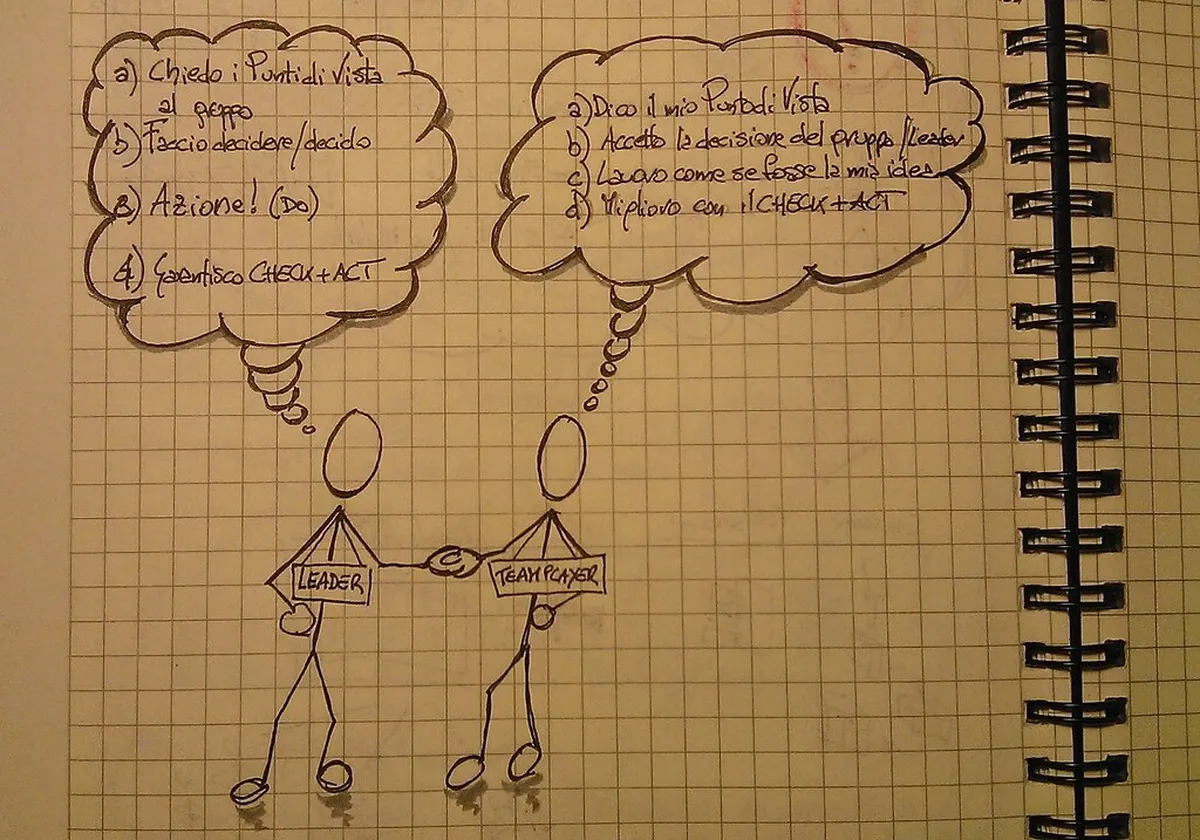 a) Chiedo i Punti di Vista
al gruppo
b) Faccio decidere/decido
3) Azione! (DO)
4) Garantisco CHECK+ACT
a) Dico il mio Punto di Vista
b) Accetto la decisione del gruppo/Leader
c) Lavoro come se fosse la mia idea
d) Miglioro con il CHECK+ACT
LEADER
TEAM PLAYER